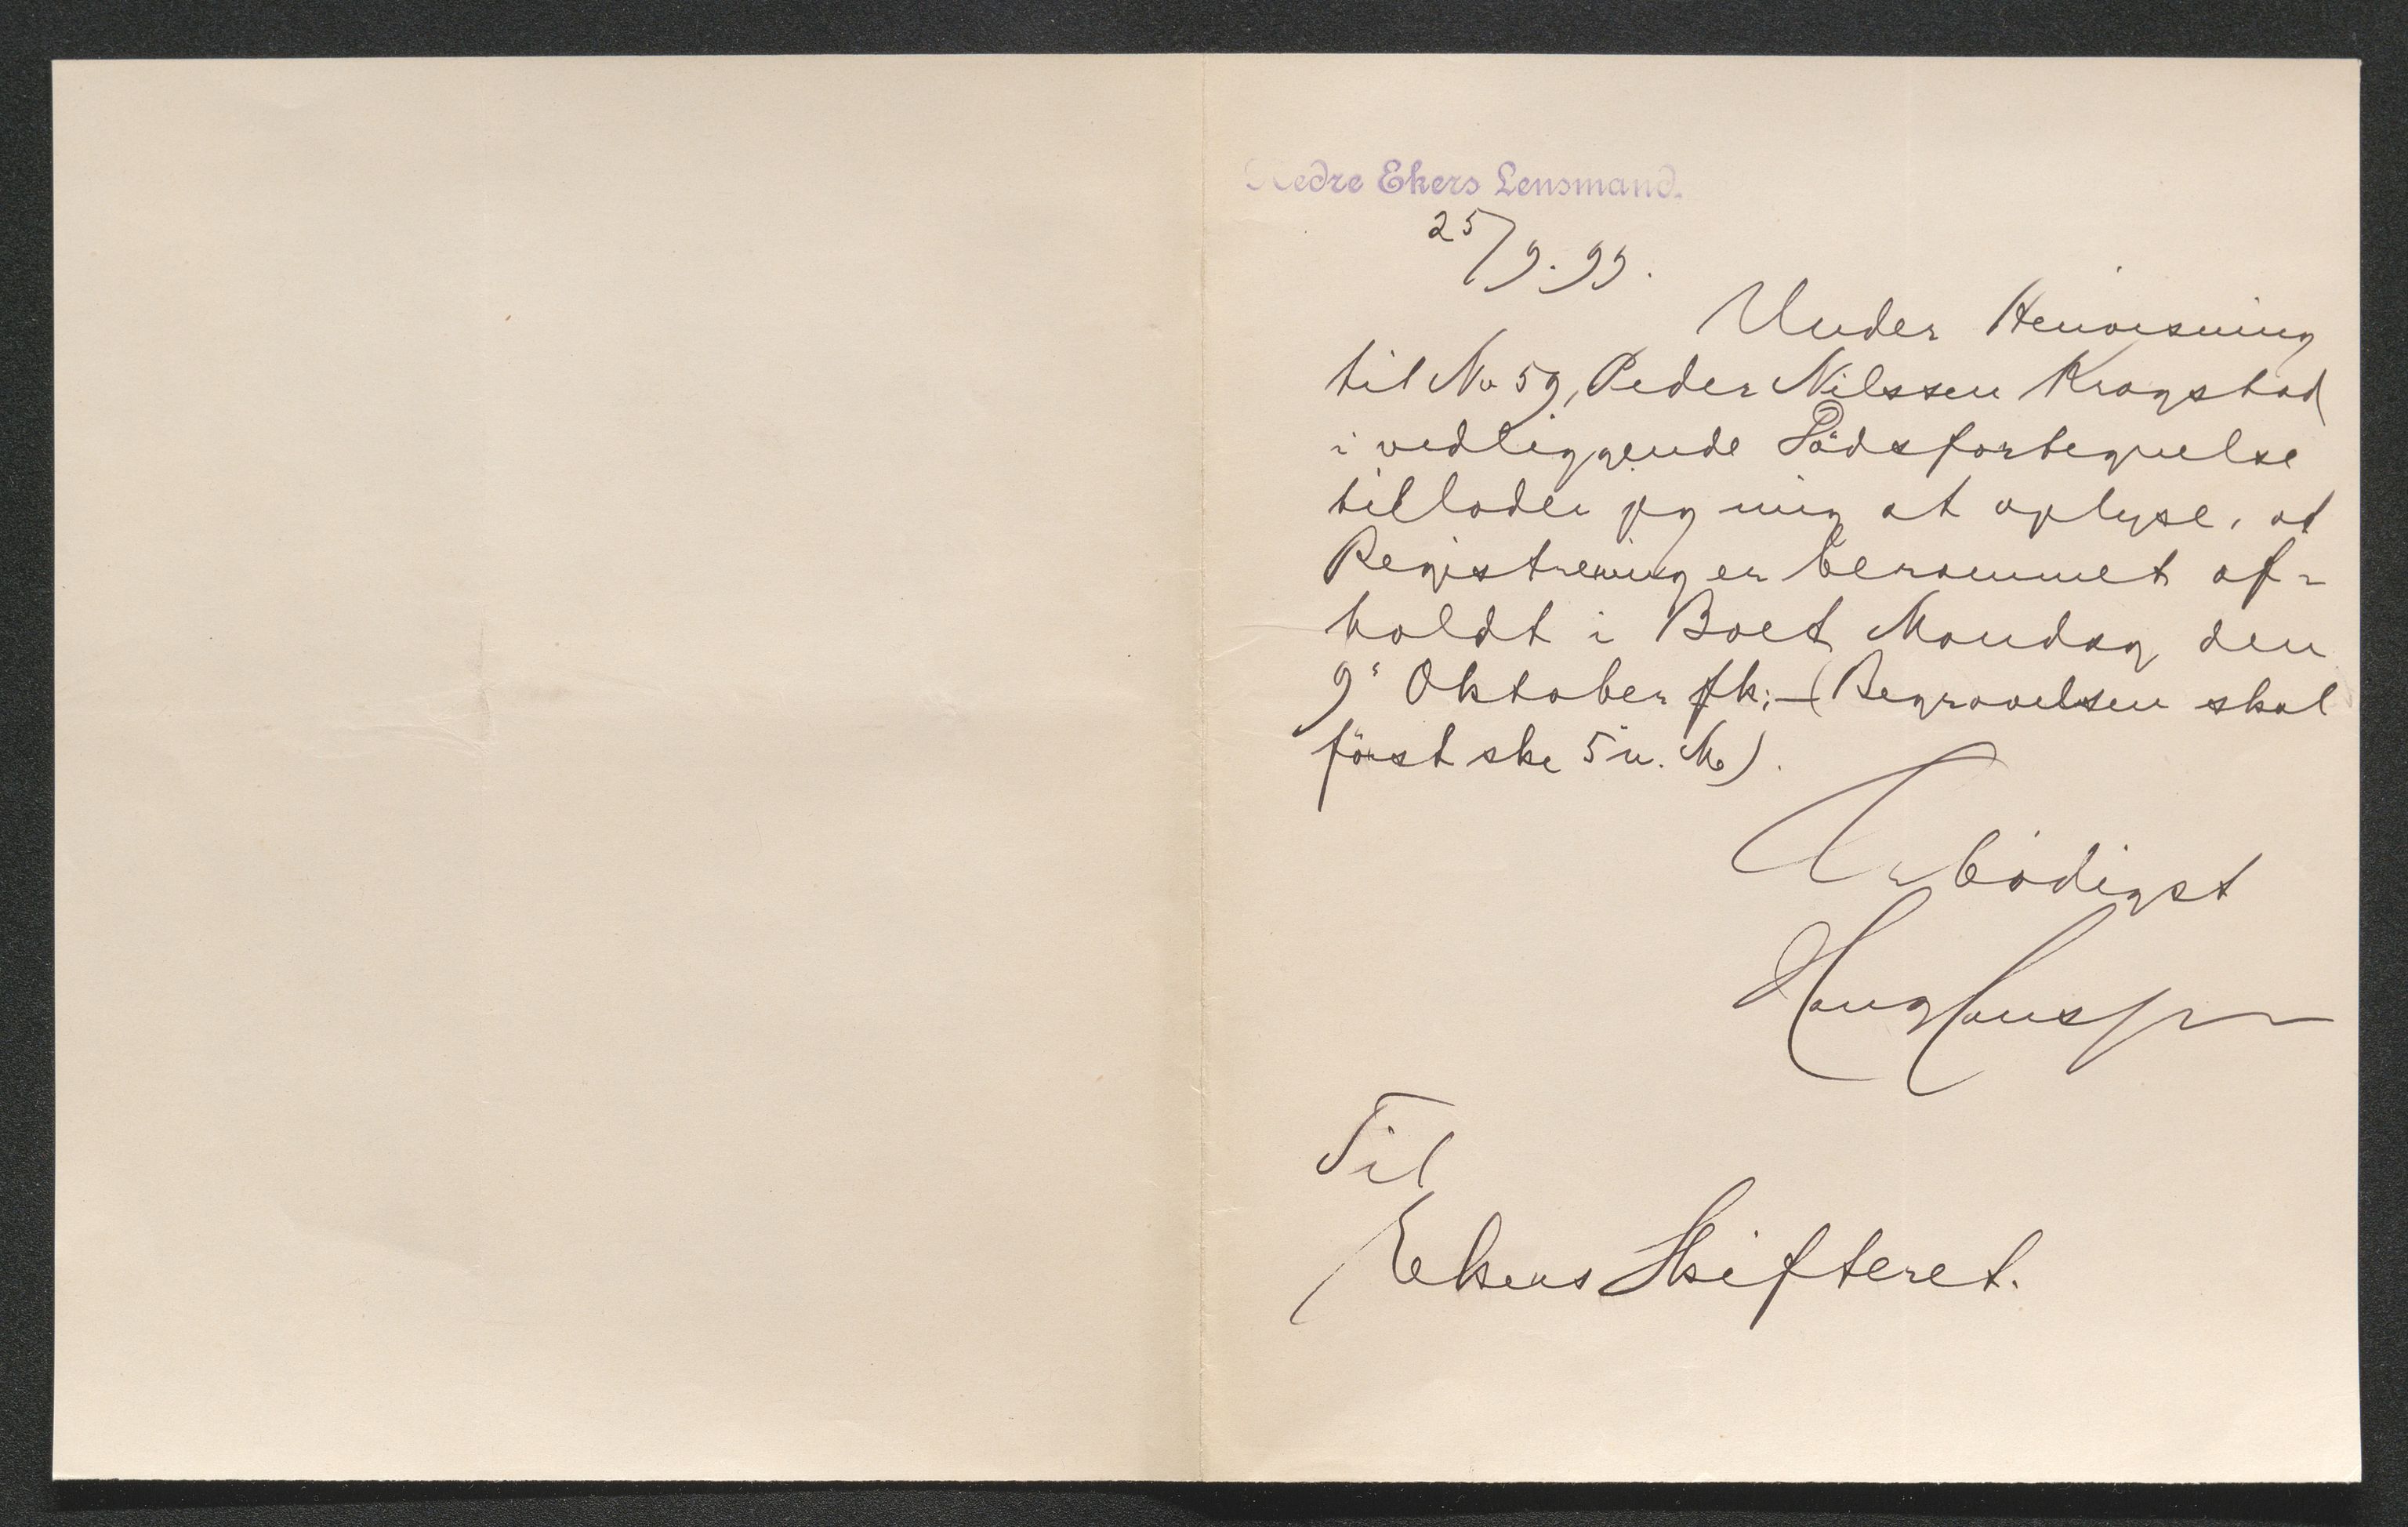 Nedre Ekers Lensmand.
25/9.99.
Under Henvisning
til No 59, Peder Nilssen Krogstad
i vedliggende Dödsfortegnelse
tillader jeg mig at oplyse, at
Registrering er berammet af-
holdt i Boet Mandag den
9' Oktober fk; - (Begravelsen skal
först ske 5 n. M).
Ærbödigst
Til
Ekers Skifteret.